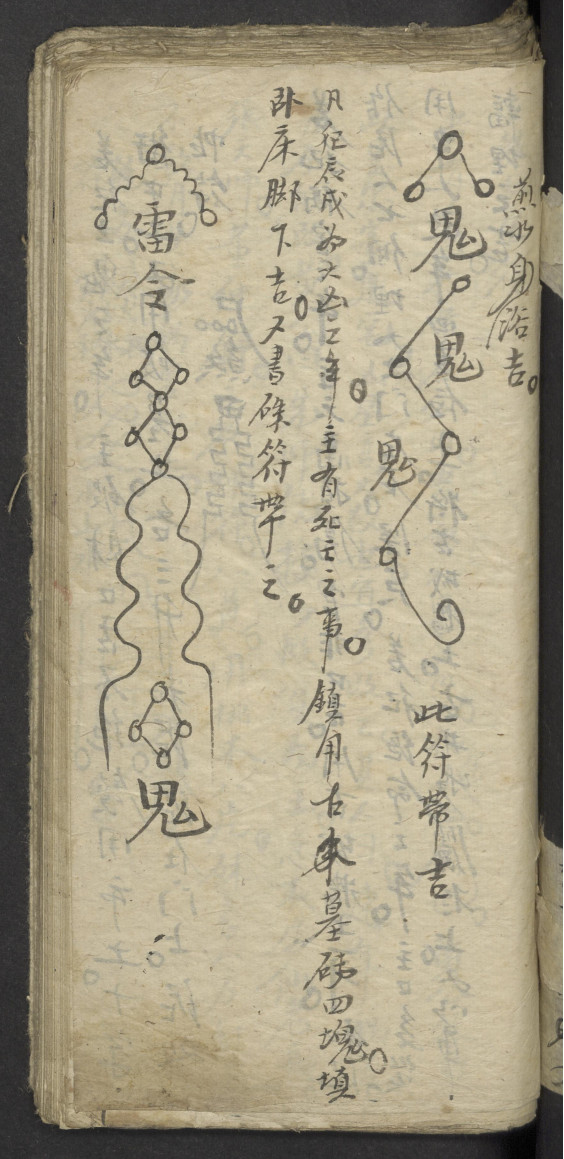 煎水身浴吉
鬼
鬼
鬼
此符帶吉
凡犯辰戌为大凶二年主有死亡之事鎮用古墓磚四塊填
卧床脚下吉又書硃符帶之
雷令
鬼